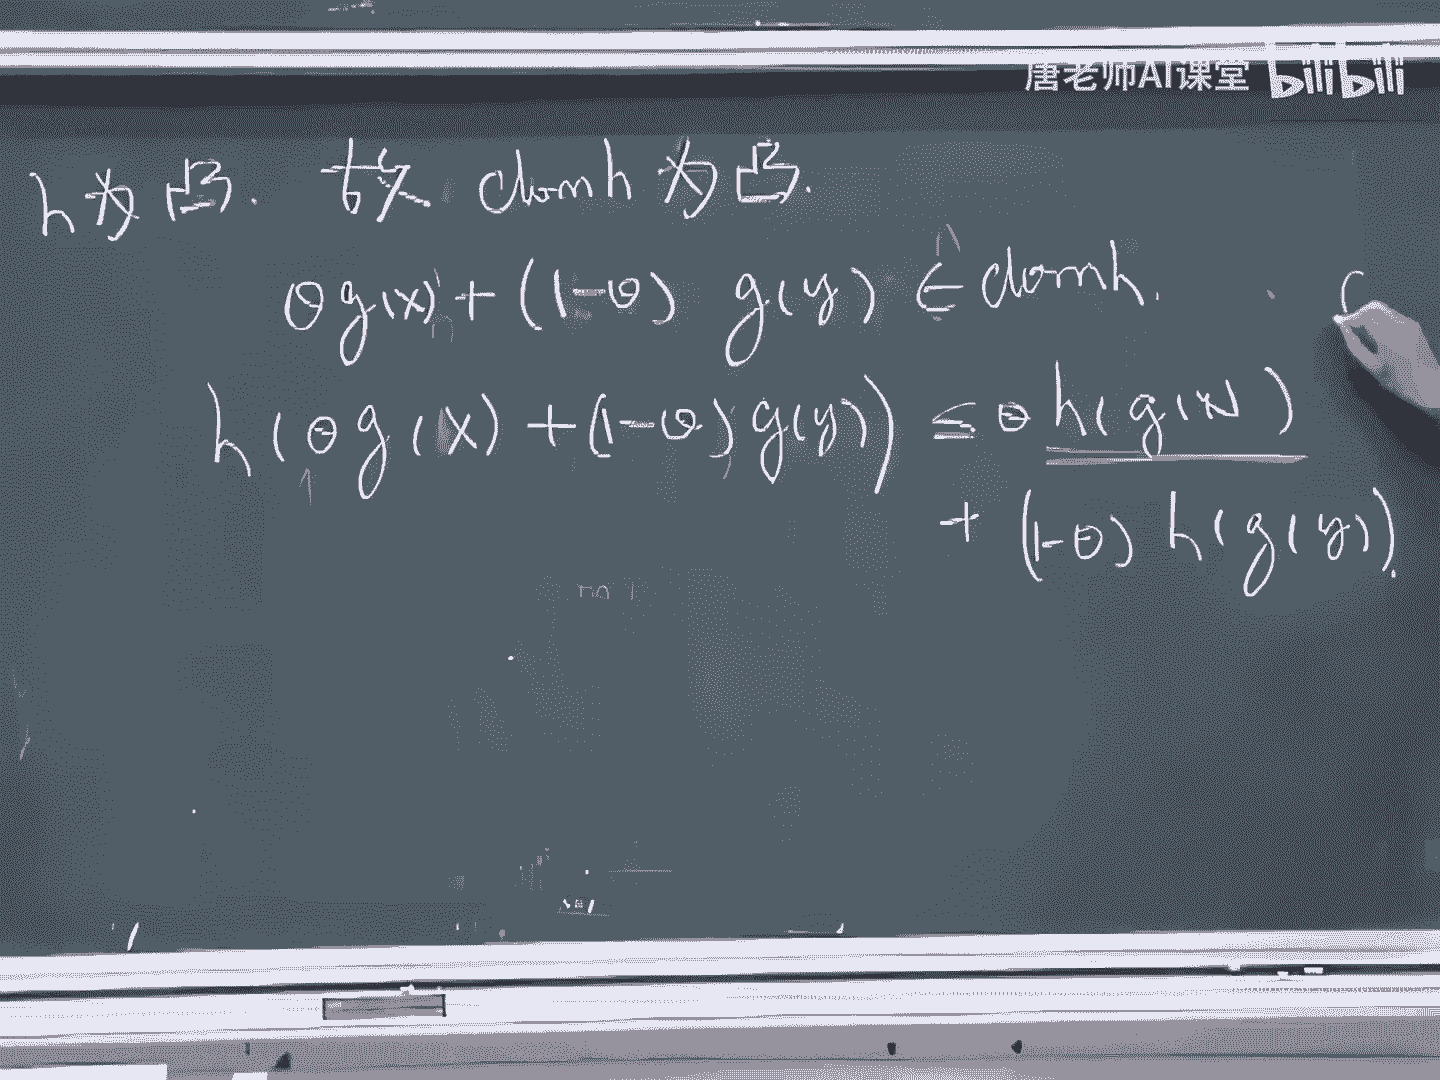 唐老师AI课堂 bilibili
h为凸. 故 domh 为凸.
θg(x)+(1-θ) g(y) ∈ domh.
h(θg(x)+(1-θ)g(y)) ≤ θh(g(x))
+ (1-θ) h(g(y)).